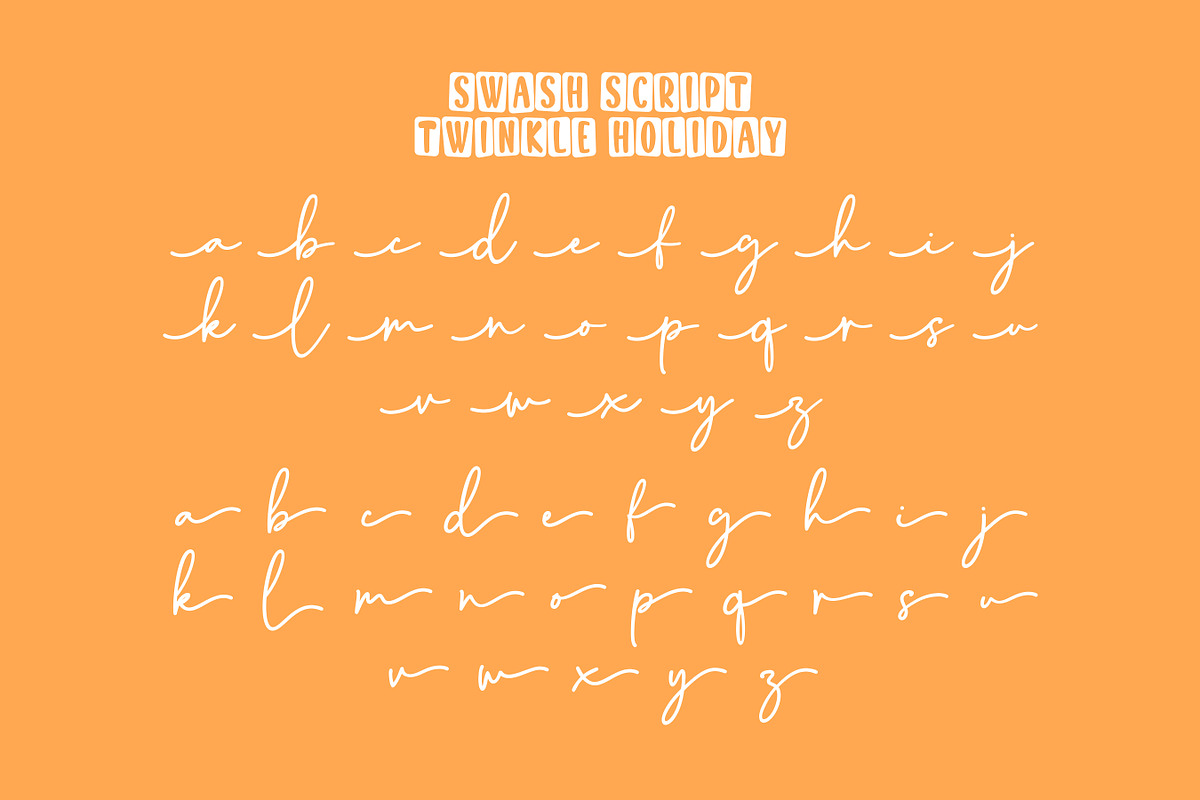 SWASH SCRIPT
TWINKLE HOLIDAY
a b c d e f g h i j
k l m n o p q r s u
v w x y z
a b c d e f g h i j
k l m n o p q r s u
v w x y z